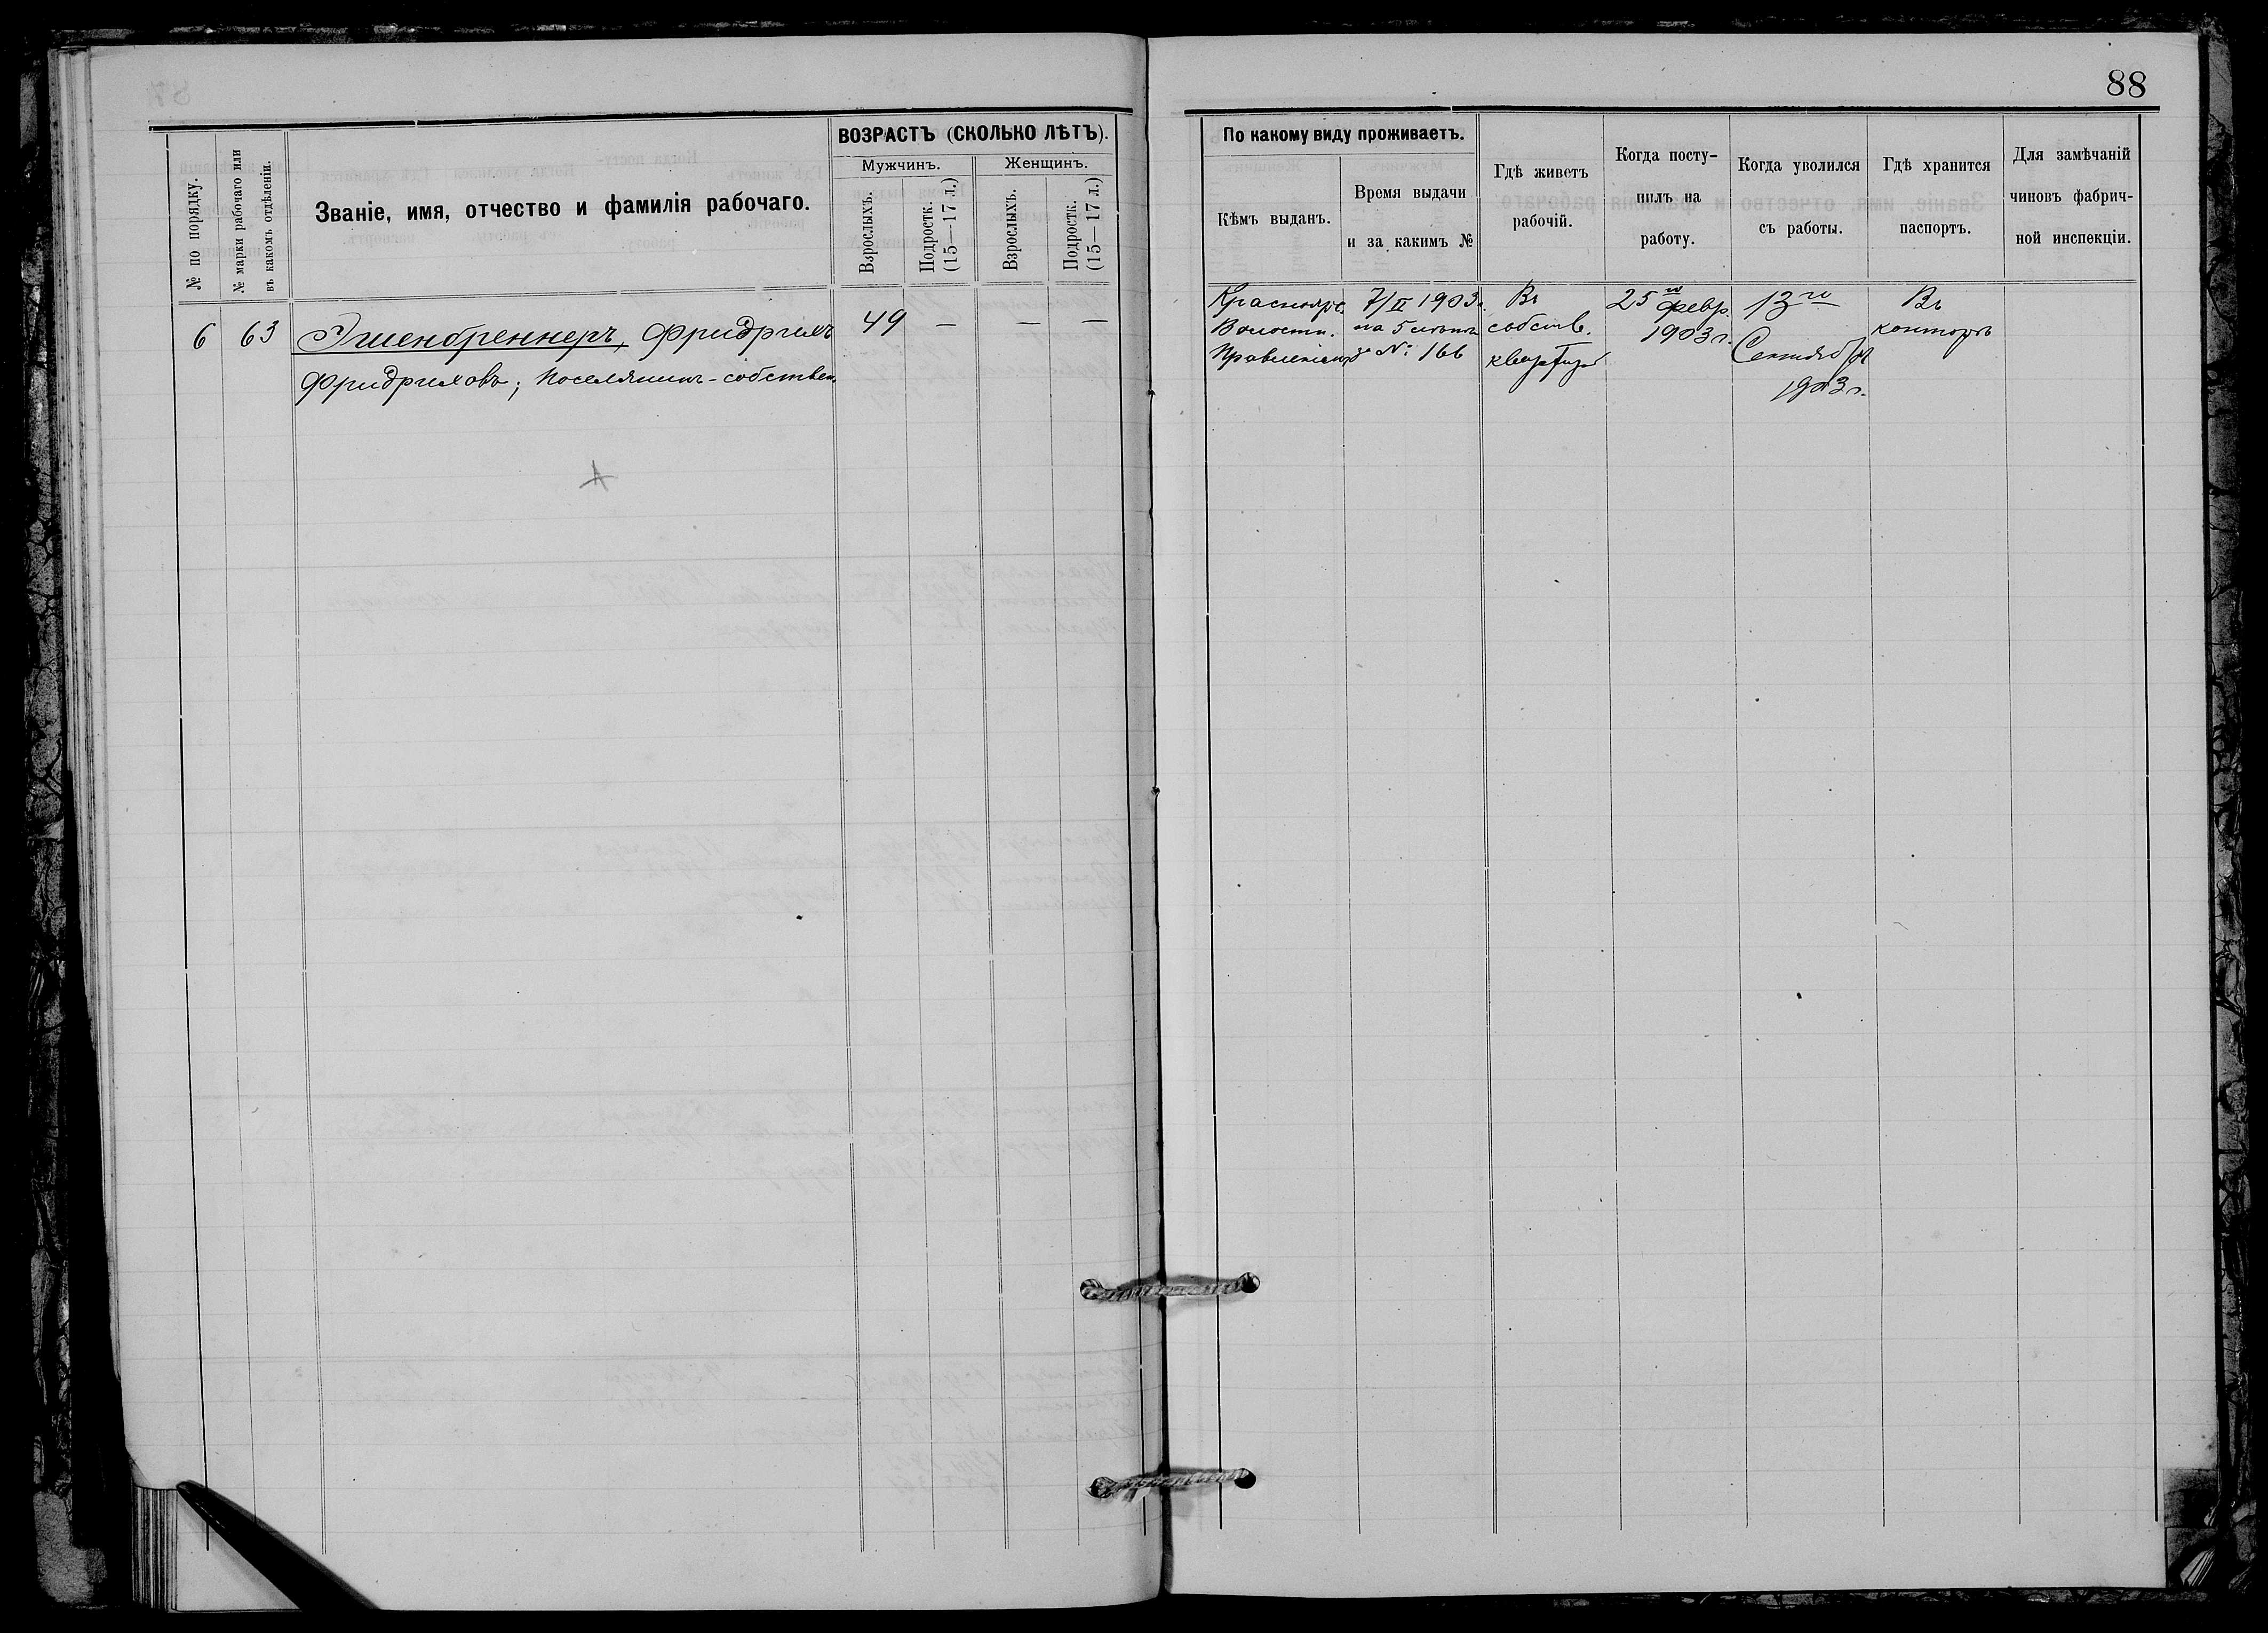 88
ВОЗРАСТЪ (СКОЛЬКО ЛѢТЪ).
Мужчинъ.
Женщинъ.
№ по порядку.
№ марки рабочаго или
въ какомъ отдѣленіи.
Званіе, имя, отчество и фамилія рабочаго.
Взрослыхъ.
Подростк.
(15—17 л.)
Взрослыхъ.
Подростк.
(15—17 л.)
По какому виду проживаетъ.
Кѣмъ выданъ.
Время выдачи
и за какимъ №
Гдѣ живетъ
рабочій.
Когда посту-
пилъ на
работу.
Когда уволился
съ работы.
Гдѣ хранится
паспортъ.
Для замѣчаній
чиновъ фабрич-
ной инспекціи.
6 63 Эшенбреннеръ, Фридрихъ 49 — — —
Фридриховъ; поселянинъ-собствен.
Краснояр.
Волостн.
Правленіемъ
7/II 1903.
на 5 
за № 166
Въ
собств.
квартирѣ
25го февр.
1903 г.
13го
Сентября
1903 г.
Въ
конторѣ